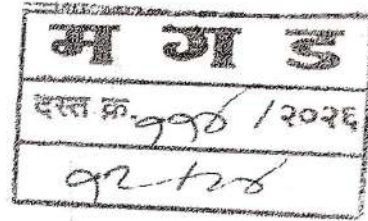 म ग ड
दस्त क्र. ११४ /२०२६
१२-/२४